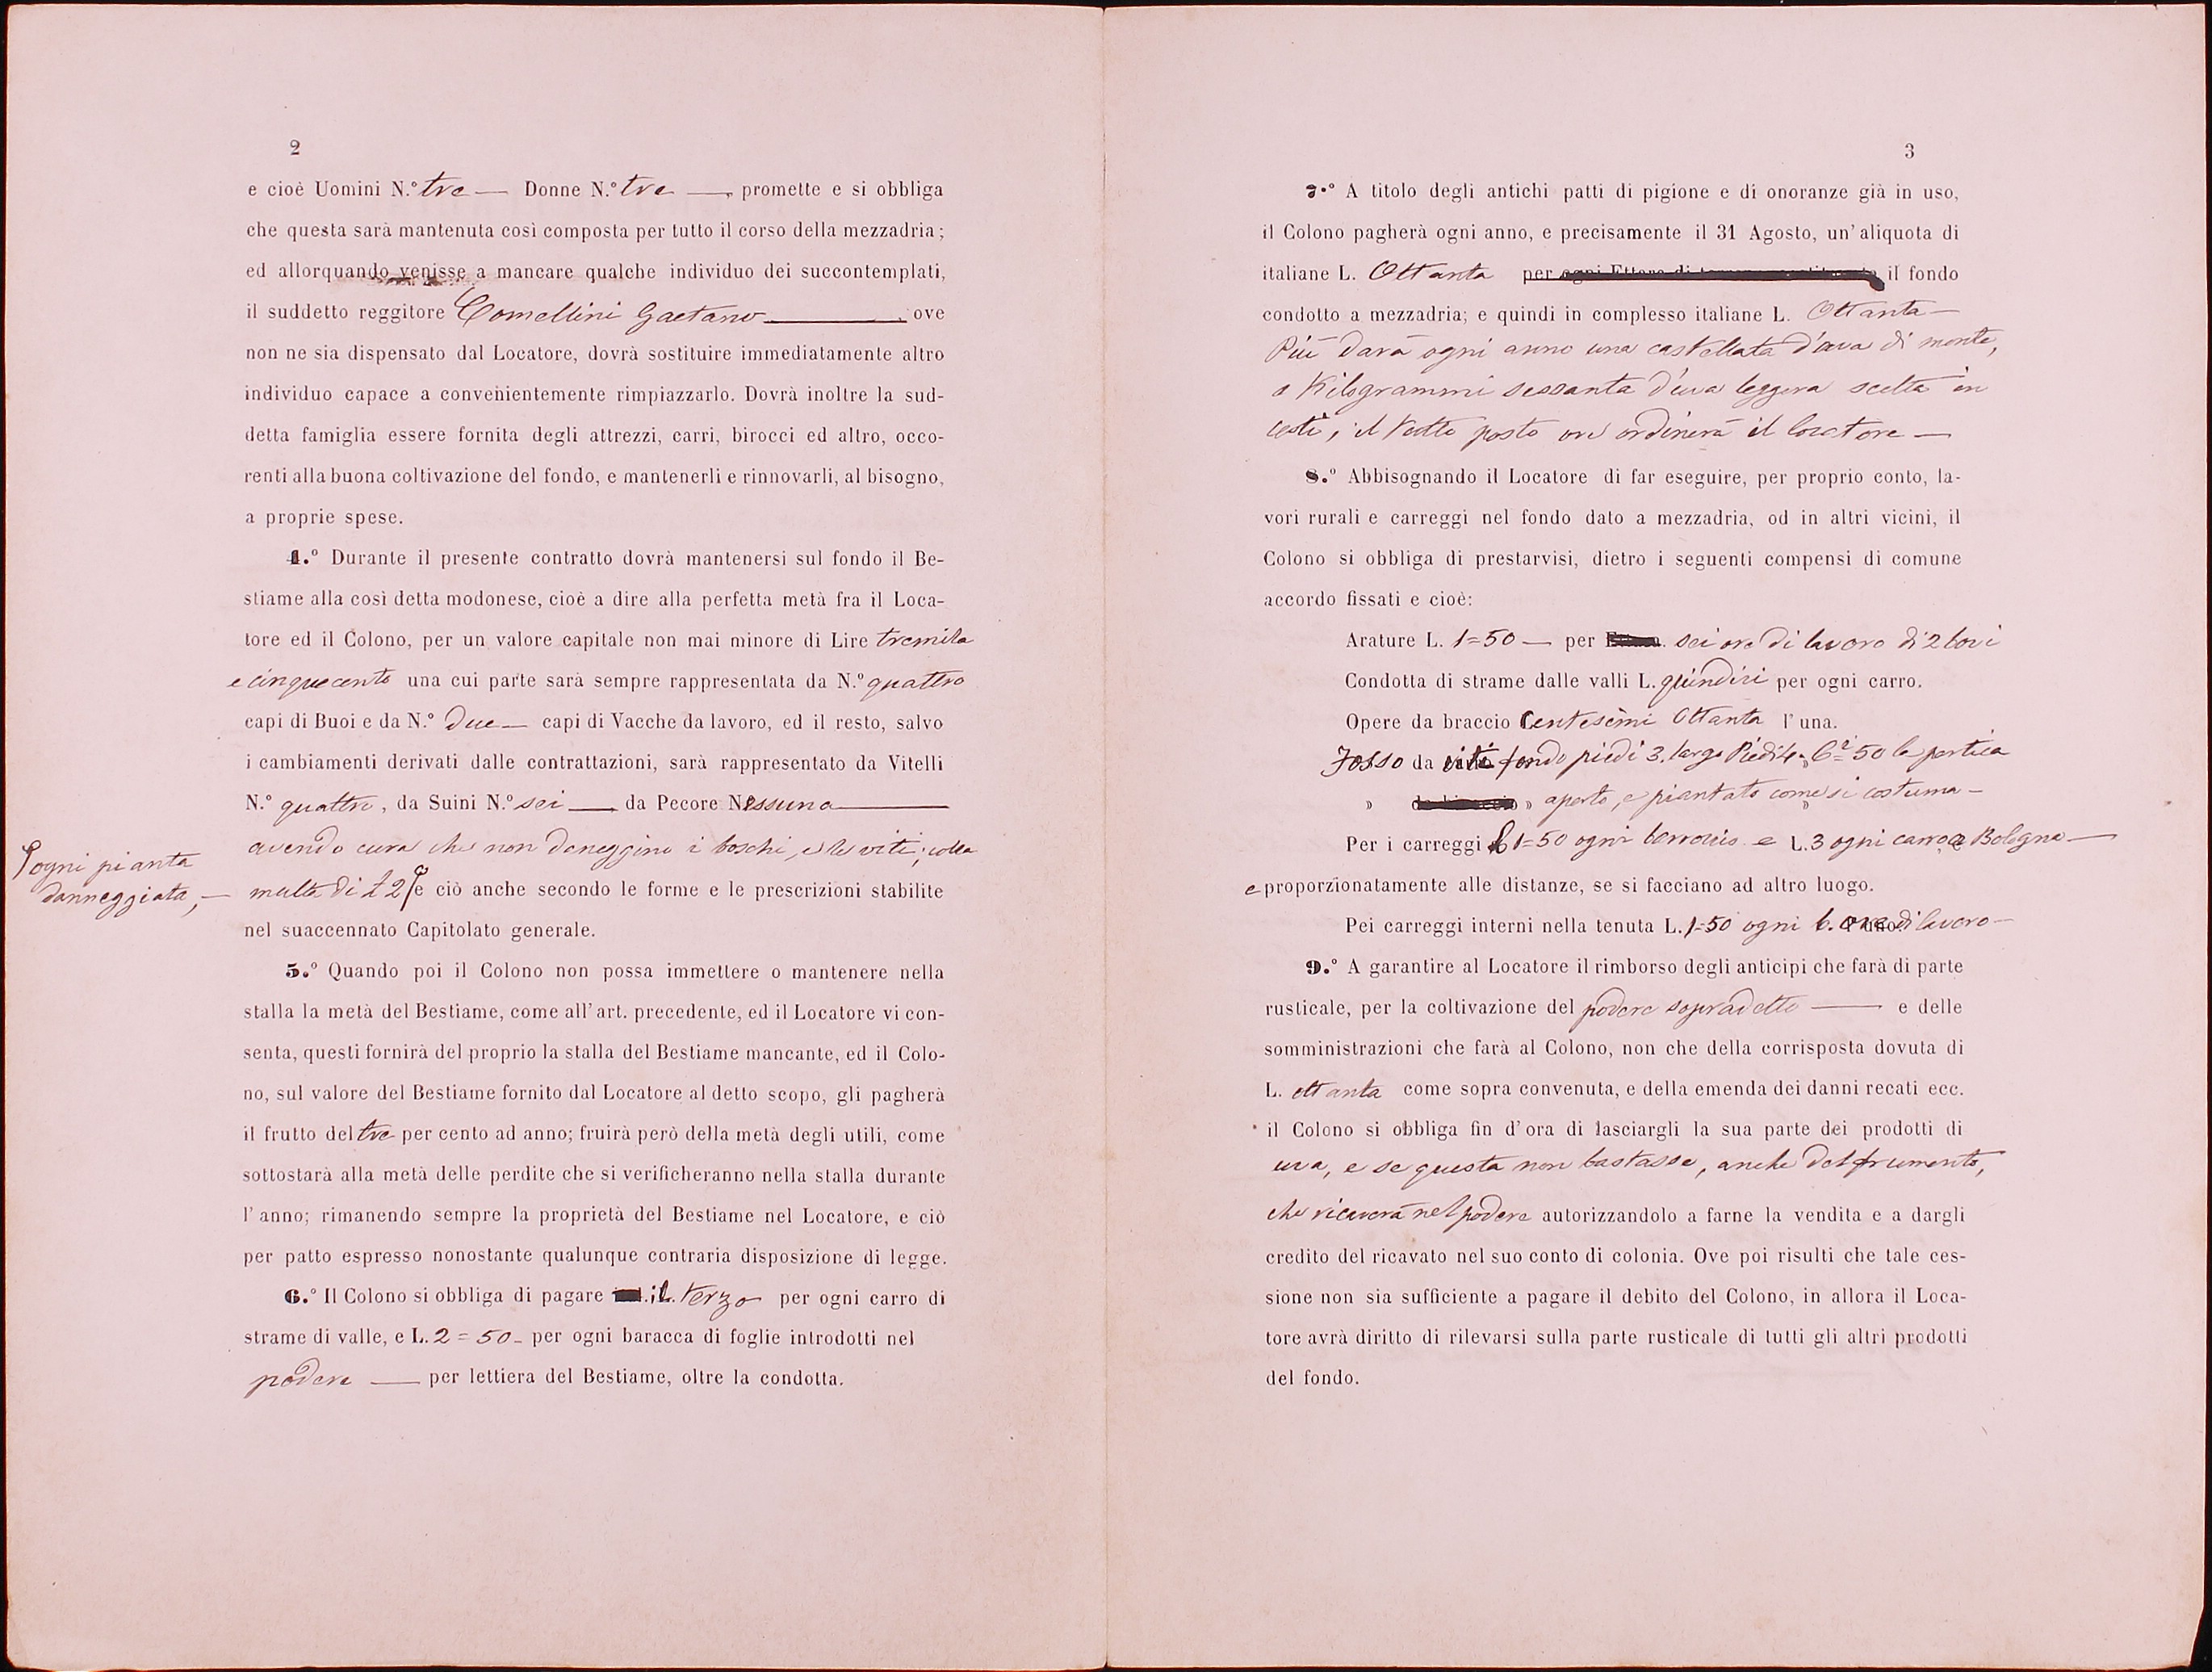 2
e cioè Uomini N.° tre — Donne N.° tre —, promette e si obbliga
che questa sarà mantenuta così composta per tutto il corso della mezzadria;
ed allorquando venisse a mancare qualche individuo dei succontemplati,
il suddetto reggitore Comellini Gaetano ove
non ne sia dispensato dal Locatore, dovrà sostituire immediatamente altro
individuo capace a convenientemente rimpiazzarlo. Dovrà inoltre la sud-
detta famiglia essere fornita degli attrezzi, carri, birocci ed altro, occo-
renti alla buona coltivazione del fondo, e mantenerli e rinnovarli, al bisogno,
a proprie spese.
4.° Durante il presente contratto dovrà mantenersi sul fondo il Be-
stiame alla così detta modonese, cioè a dire alla perfetta metà fra il Loca-
tore ed il Colono, per un valore capitale non mai minore di Lire tremila
e cinquecento una cui parte sarà sempre rappresentata da N.° quattro
capi di Buoi e da N.° due — capi di Vacche da lavoro, ed il resto, salvo
i cambiamenti derivati dalle contrattazioni, sarà rappresentato da Vitelli
N.° quattro, da Suini N.° sei — da Pecore Nessuna —
avendo cura che non daneggino i boschi, e le viti; colla
multa di £ 2 e ciò anche secondo le forme e le prescrizioni stabilite
ogni pianta
danneggiata, —
nel suaccennato Capitolato generale.
5.° Quando poi il Colono non possa immettere o mantenere nella
stalla la metà del Bestiame, come all'art. precedente, ed il Locatore vi con-
senta, questi fornirà del proprio la stalla del Bestiame mancante, ed il Colo-
no, sul valore del Bestiame fornito dal Locatore al detto scopo, gli pagherà
il frutto del tre per cento ad anno; fruirà però della metà degli utili, come
sottostarà alla metà delle perdite che si verificheranno nella stalla durante
l'anno; rimanendo sempre la proprietà del Bestiame nel Locatore, e ciò
per patto espresso nonostante qualunque contraria disposizione di legge.
6.° Il Colono si obbliga di pagare il terzo per ogni carro di
strame di valle, e L. 2=50 - per ogni baracca di foglie introdotti nel
podere — per lettiera del Bestiame, oltre la condotta.
3
7.° A titolo degli antichi patti di pigione e di onoranze già in uso,
il Colono pagherà ogni anno, e precisamente il 31 Agosto, un'aliquota di
italiane L. Ottanta per ogni Ettare di terreno il fondo
condotto a mezzadria; e quindi in complesso italiane L. Ottanta —
Più darà ogni anno una castellata d'uva di monte,
e Kilogrammi sessanta d'uva leggera scelta in
cesti, il tutto posto ove ordinerà il locatore —
8.° Abbisognando il Locatore di far eseguire, per proprio conto, la-
vori rurali e carreggi nel fondo dato a mezzadria, od in altri vicini, il
Colono si obbliga di prestarvisi, dietro i seguenti compensi di comune
accordo fissati e cioè:
Arature L. 1=50 — per sei ore di lavoro di 2 bovi
Condotta di strame dalle valli L. quindici per ogni carro.
Opere da braccio Centesimi Ottanta l'una.
Fosso da viti fondo piedi 3. largo Piedi 4. C.i 50 la pertica
» » aperto, e piantato come si costuma —
Per i carreggi £ 1=50 ogni barroccio e L. 3 ogni carro a Bologna —
e proporzionatamente alle distanze, se si facciano ad altro luogo.
Pei carreggi interni nella tenuta L. 1=50 ogni 6. ore di lavoro —
9.° A garantire al Locatore il rimborso degli anticipi che farà di parte
rusticale, per la coltivazione del podere sopradetto — e delle
somministrazioni che farà al Colono, non che della corrisposta dovuta di
L. ottanta come sopra convenuta, e della emenda dei danni recati ecc.
il Colono si obbliga fin d'ora di lasciargli la sua parte dei prodotti di
uva, e se questa non bastasse, anche del frumento,
che ricaverà nel podere autorizzandolo a farne la vendita e a dargli
credito del ricavato nel suo conto di colonia. Ove poi risulti che tale ces-
sione non sia sufficiente a pagare il debito del Colono, in allora il Loca-
tore avrà diritto di rilevarsi sulla parte rusticale di tutti gli altri prodotti
del fondo.